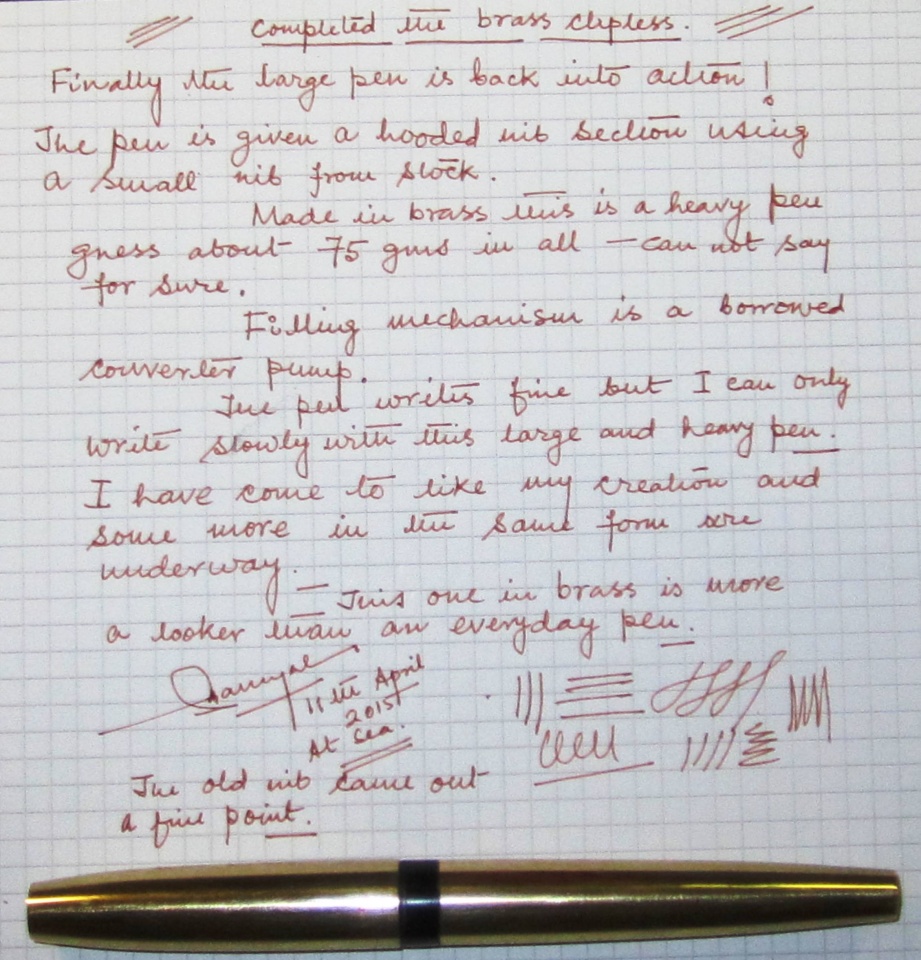 Completed the brass clipless.
Finally the large pen is back into action!
The pen is given a hooded nib section using
a small nib from stock.
Made in brass this is a heavy pen
gness about 75 gms in all – can not say
for sure.
Filling mechanism is a borrowed
converter pump.
The pen writes fine but I can only
write slowly with this large and heavy pen.
I have come to like my creation and
some more in the same form are
underway.
This one in brass is more
a looker than an everyday pen.
11th April
2015
At Sea.
The old nib came out
a fine point.